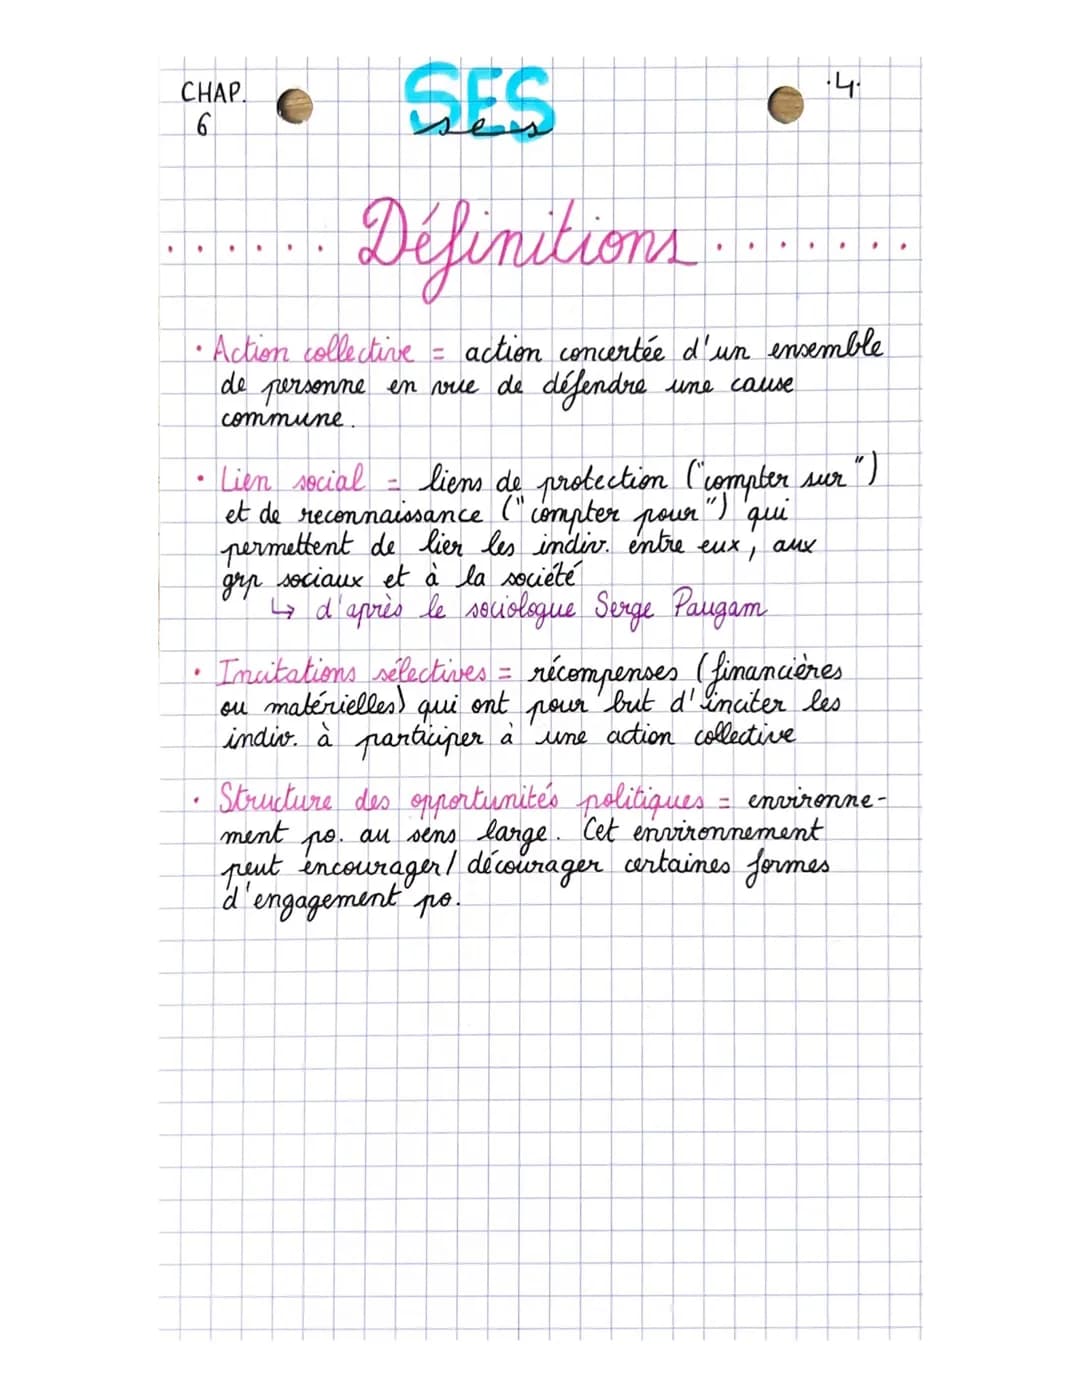 CHAP.
6
SES
ses
.4.
Définitions
• Action collective = action concertée d'un ensemble
de personne en vue de défendre une cause
commune.
• Lien social = liens de protection ("compter sur")
et de reconnaissance ("compter pour") qui
permettent de lier les indiv. entre eux, aux
grp sociaux et à la société
↳ d'après le sociologue Serge Paugam
• Incitations sélectives = récompenses (financières
ou matérielles) qui ont pour but d'inciter les
indiv. à participer à une action collective
• Structure des opportunités politiques = environne-
ment po. au sens large. Cet environnement
peut encourager/ décourager certaines formes
d'engagement po.